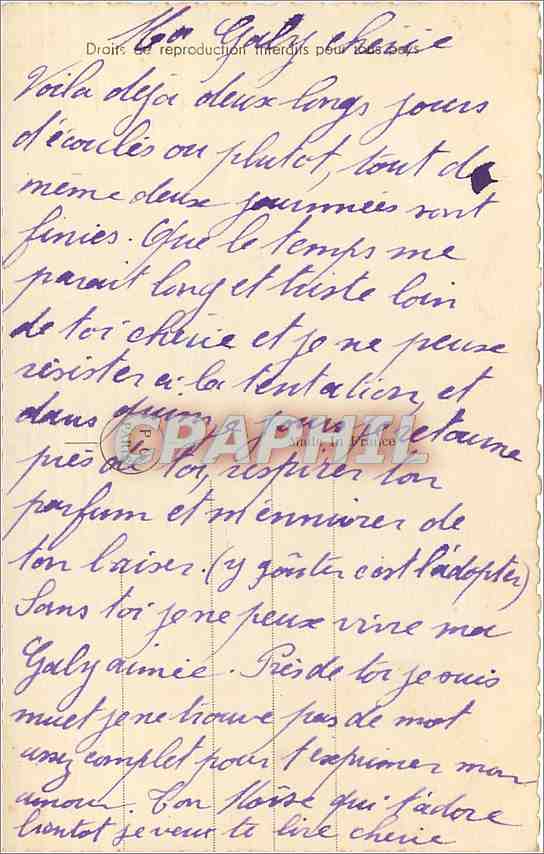 Ma Galy chérie
Droits de reproduction interdits pour tous pays
Voila déja deux longs jours
d'écoulés ou plutot, tout de
même deux journnées sont
finies. Que le temps me
parait long et triste loin
de toi chérie et je ne peux
résister à la tentation, et
dans je retourne
CPAPHIL
Made in France
près de toi, respirer ton
parfum et m'ennivrer de
ton baiser. (y goûter c'est l'adopter)
Sans toi je ne peux vivre ma
Galy aimée. Près de toi je suis
muet je ne trouve pas de mot
assez complet pour t'exprimer mon
amour. Ton Moïse qui t'adore
bientot je veux te lire chérie